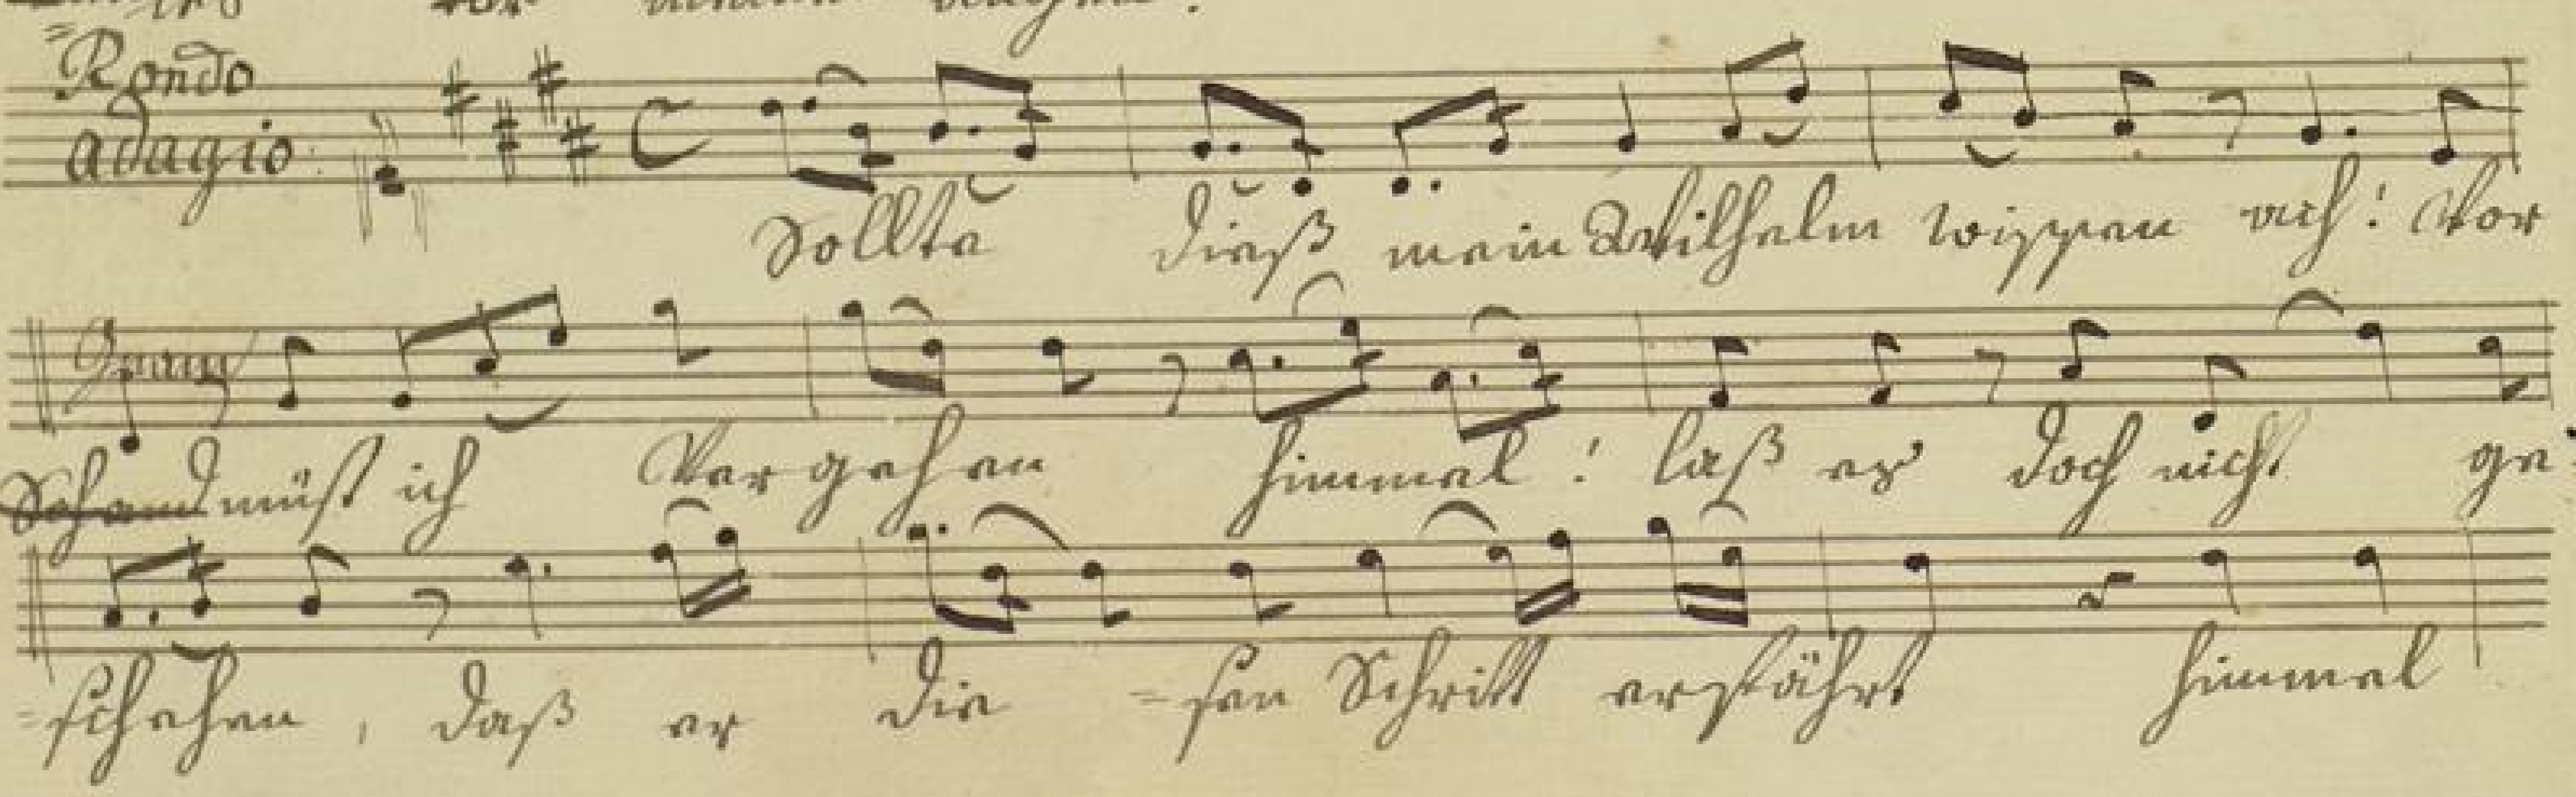 vor meinen
Rondo
adagio
Sollte dieß mein Wilhelm wissen ach! Vor
Gram
Schand müst ich Vergehen himmel! laß es doch nicht ge-
=schehen, daß er die =sen Schritt erfährt himmel